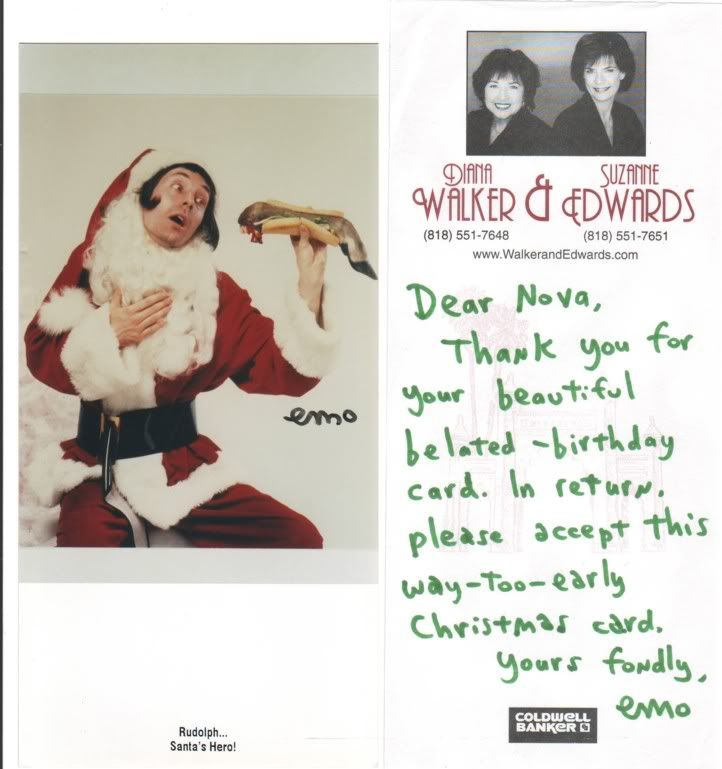 emo
Rudolph...
Santa's Hero!
DIANA SUZANNE
WALKER & EDWARDS
(818) 551-7648 (818) 551-7651
www.WalkerandEdwards.com
Dear Nova,
Thank you for
your beautiful
belated-birthday
card. In return,
please accept this
way-too-early
Christmas card.
Yours fondly,
emo
COLDWELL
BANKER